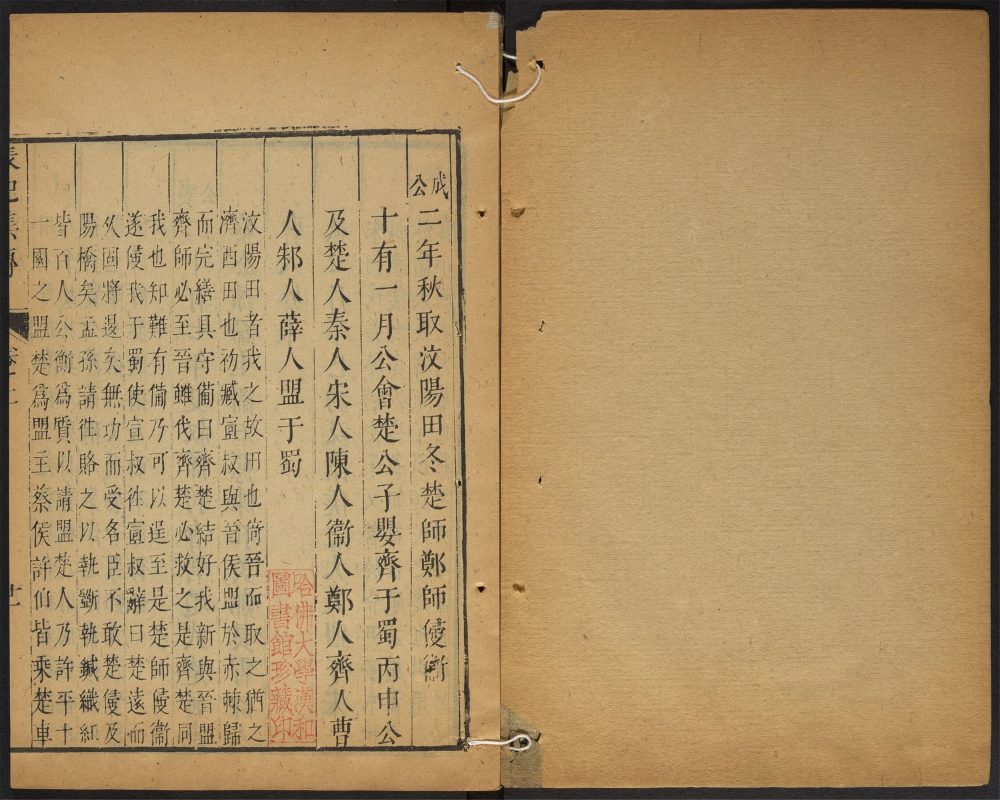 成公
二年秋取汶陽田冬楚師鄭師侵衞
十有一月公會楚公子嬰齊于蜀丙申公
及楚人秦人宋人陳人衞人鄭人齊人曹
人邾人薛人盟于蜀
汶陽田者我之故田也倚晉而取之猶之
濟西田也初臧宣叔與晉侯盟於赤棘歸
而完繕具守備曰齊楚結好我新與晉盟
齊師必至晉雖伐齊楚必救之是齊楚同
我也知難有備乃可以逞至是楚師侵衞
遂侵我于蜀使宣叔徃宣叔辭曰楚遠而
久固將退矣無功而受名臣不敢楚侵及
陽橋矣孟孫請徃賂之以執斵執鍼織紅
皆百人公衡爲質以請盟楚人乃許平十
一國之盟楚爲盟主蔡侯許伯皆乘楚車
哈佛大學漢和
圖書館珍藏印